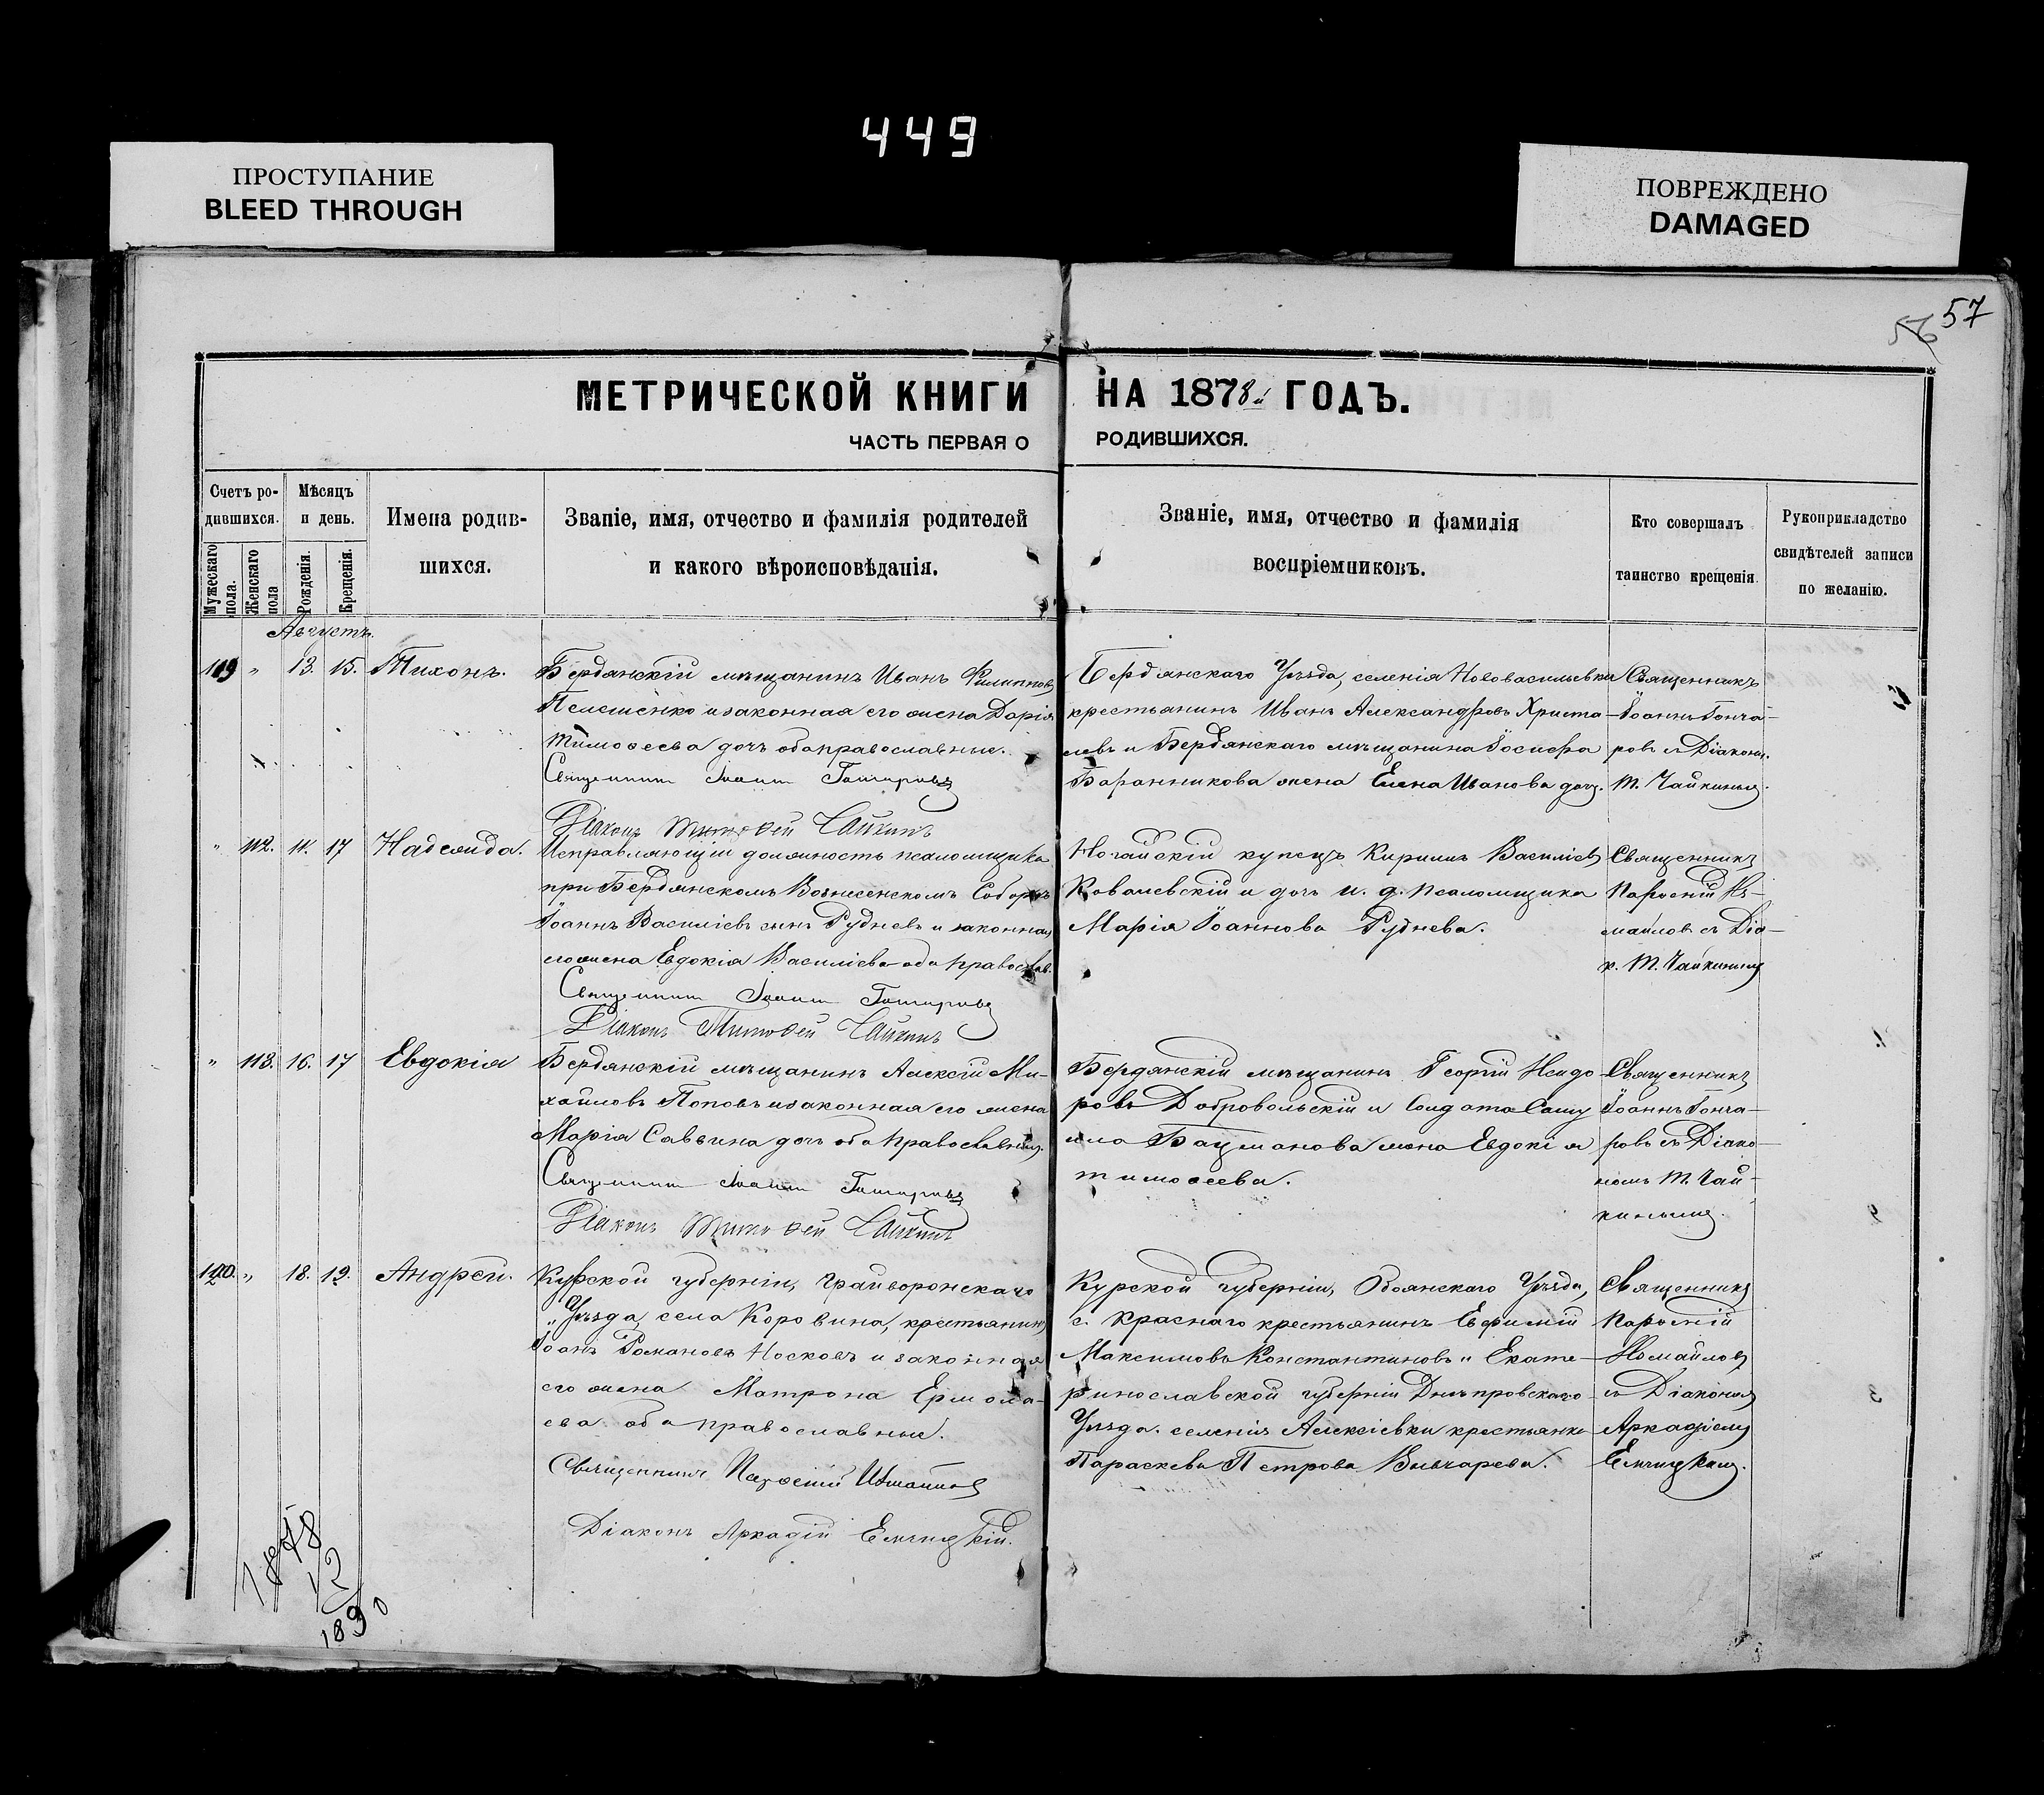 449
ПРОСТУПАНИЕ
BLEED THROUGH
ПОВРЕЖДЕНО
DAMAGED
57
56
МЕТРИЧЕСКОЙ КНИГИ НА 1878й ГОДЪ.
ЧАСТЬ ПЕРВАЯ О РОДИВШИХСЯ.
Счетъ ро-
дившихся.
Мужескаго пола.
Женскаго пола
Мѣсяцъ
и день.
Рожденія.
Крещенія.
Имена родив-
шихся.
Званіе, имя, отчество и фамилія родителей
и какого вѣроисповѣданія.
Званіе, имя, отчество и фамилія
воспріемниковъ.
Кто совершалъ
таинство крещенія
Рукоприкладство
свидѣтелей записи
по желанію.
Августъ.
119 " 13. 15. Тихонъ.
Бердянскій мѣщанинъ Иванъ Филиповъ
и законная его жена Дарія
Тимоѳеева дочь оба православные.
Священникъ Іоаннъ Гончаровъ
Діаконъ Тимоѳей Чайкинъ
Бердянскаго Уѣзда, селенія Нововасильевки
крестьянинъ Иванъ Александровъ Христа-
левъ и Бердянскаго мѣщанина Іосифа
Баранникова жена Елена Иванова дочь.
Священникъ
Іоаннъ Гонча-
ровъ съ Діакон.
Т. Чайкинымъ.
" 112. 11. 17 Надежда.
Исправляющій должность псаломщика
при Бердянскомъ Вознесенскомъ Соборѣ
Іоаннъ Василіевъ сынъ Рудневъ и законная
его жена Евдокія Василіева оба православ.
Священникъ Іоаннъ Гончаровъ
Діаконъ Тимоѳей Чайкинъ
Ногайскій купецъ Кирилъ Василіевъ
Ковалевскій и дочь и. д. псаломщика
Марія Іоаннова Руднева.
Священникъ
Парѳеній Из-
маиловъ съ Діа-
к. Т. Чайкинымъ
" 113. 16. 17 Евдокія
Бердянскій мѣщанинъ Алексій Ми-
хайловъ Поповъ и законная его жена
Марія Саввина дочь оба православные.
Священникъ Іоаннъ Гончаровъ
Діаконъ Тимоѳей Чайкинъ
Бердянскій мѣщанинъ Георгій
Добровольскій и Солдата Саму
ила Бацманова жена Евдокія
Тимоѳеева.
Священникъ
Іоаннъ Гонча-
ровъ съ Діако-
номъ Т. Чай-
кинымъ.
120. " 18. 19. Андрей.
Курской губерніи, Грайворонскаго
Уѣзда, села Коровина, крестьянинъ
Іоанъ Романовъ Носковъ и законная
его жена Матрона Ермола-
ева оба православные.
Священникъ Парѳеній Измаиловъ
Діаконъ Аркадій Емчицкій.
Курской губерніи, Обоянскаго Уѣзда,
с. Краснаго крестьянинъ Евфимій
Максимовъ Константиновъ и Екате-
ринославской губерніи Днѣпровскаго
Уѣзда. селенія Алексіевки крестьянка
Параскева Петрова
Священникъ
Парѳеній
Измаиловъ
съ Діакономъ
Аркадіемъ
Емчицкимъ.
1878
12
1890